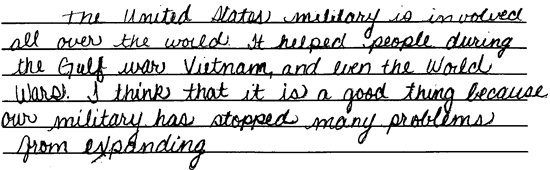 The United States military is involved
all over the world. It helped people during
the Gulf war Vietnam, and even the World
Wars. I think that it is a good thing because
our military has stopped many problems
from expanding